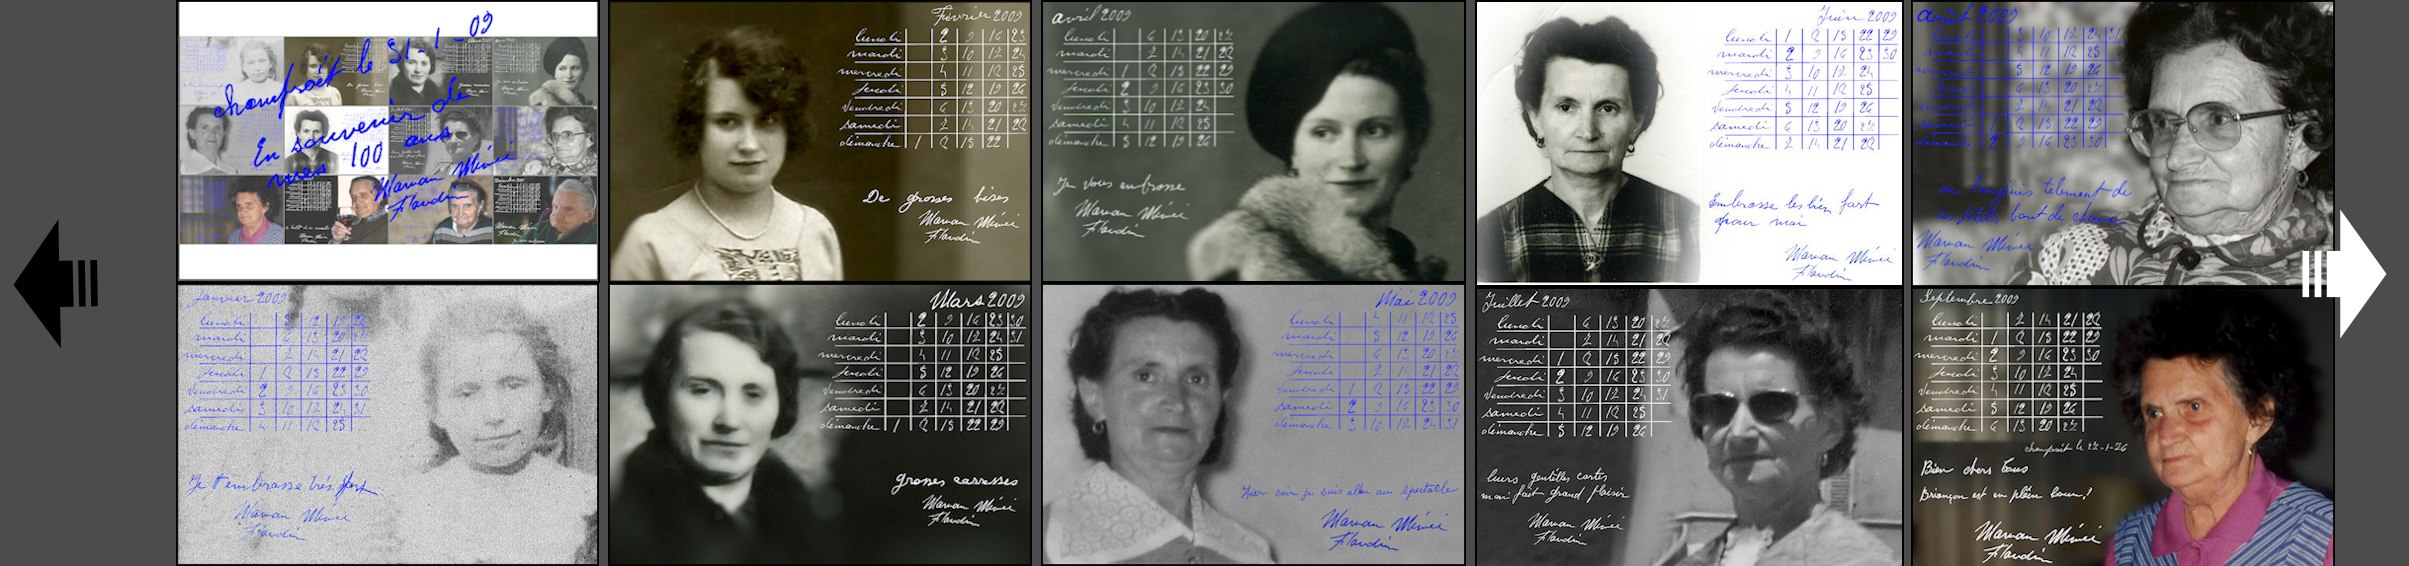 Champroët le 31-1-09
En souvenir de
mes 100 ans
Maman Mimi
Flandin
Février 2009
lundi 2 9 16 23
mardi 3 10 17 24
mercredi 4 11 18 25
jeudi 5 12 19 26
vendredi 6 13 20 27
samedi 7 14 21 28
dimanche 1 8 15 22
De grosses bises
Maman Mimi
Flandin
avril 2009
lundi 6 13 20 27
mardi 7 14 21 28
mercredi 1 8 15 22 29
jeudi 2 9 16 23 30
vendredi 3 10 17 24
samedi 4 11 18 25
dimanche 5 12 19 26
Je vous embrasse
Maman Mimi
Flandin
Juin 2009
lundi 1 8 15 22 29
mardi 2 9 16 23 30
mercredi 3 10 17 24
jeudi 4 11 18 25
vendredi 5 12 19 26
samedi 6 13 20 27
dimanche 7 14 21 28
Embrasse les bien fort
pour moi
Maman Mimi
Flandin
août 2009
lundi 3 10 17 24 31
mardi 4 11 18 25
mercredi 5 12 19 26
jeudi 6 13 20 27
vendredi 7 14 21 28
samedi 1 8 15 22 29
dimanche 2 9 16 23 30
telement de
petits bout de
Maman Mimi
Flandin
Janvier 2009
lundi 5 12 19 26
mardi 6 13 20 27
mercredi 7 14 21 28
jeudi 1 8 15 22 29
vendredi 2 9 16 23 30
samedi 3 10 17 24 31
dimanche 4 11 18 25
Je t'embrasse très fort
Maman Mimi
Flandin
Mars 2009
lundi 2 9 16 23 30
mardi 3 10 17 24 31
mercredi 4 11 18 25
jeudi 5 12 19 26
vendredi 6 13 20 27
samedi 7 14 21 28
dimanche 1 8 15 22 29
grosses caresses
Maman Mimi
Flandin
Mai 2009
lundi 4 11 18 25
mardi 5 12 19 26
mercredi 6 13 20 27
jeudi 7 14 21 28
vendredi 1 8 15 22 29
samedi 2 9 16 23 30
dimanche 3 10 17 24 31
Hier soir je suis aller au spectacle
Maman Mimi
Flandin
Juillet 2009
lundi 6 13 20 27
mardi 7 14 21 28
mercredi 1 8 15 22 29
jeudi 2 9 16 23 30
vendredi 3 10 17 24 31
samedi 4 11 18 25
dimanche 5 12 19 26
leurs gentilles cartes
mon fait grand plaisir
Maman Mimi
Flandin
Septembre 2009
lundi 7 14 21 28
mardi 1 8 15 22 29
mercredi 2 9 16 23 30
jeudi 3 10 17 24
vendredi 4 11 18 25
samedi 5 12 19 26
dimanche 6 13 20 27
Champroët le 27-1-76
Bien chers tous
Briançon est en pleine boum!
Maman Mimi
Flandin